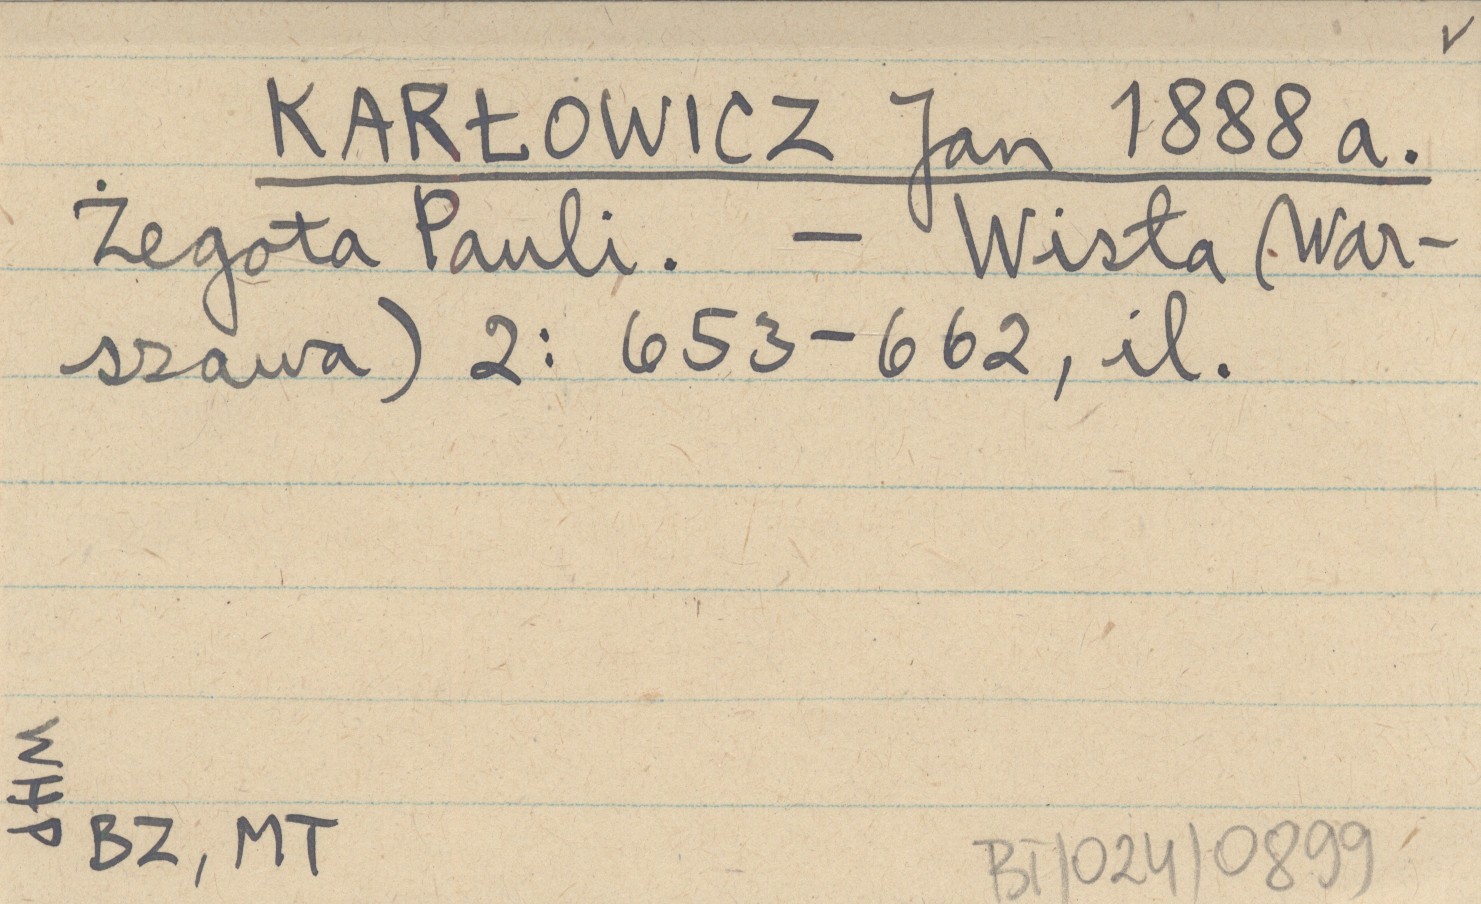 KARŁOWICZ Jan 1888 a.
Żegota Pauli. — Wisła (War-
szawa) 2: 653-662, il.
BZ, MT
BT/024/0899